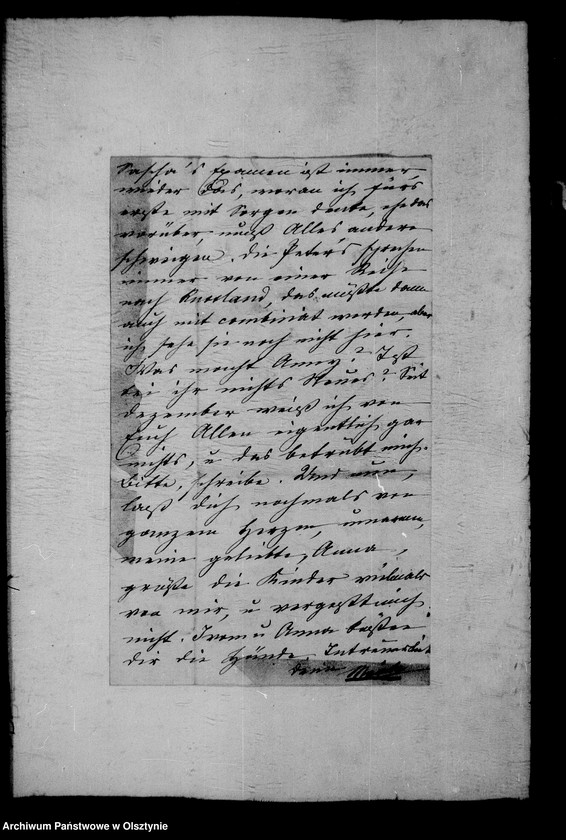 Sascha's Examen ist immer
wieder Das, woran ich fürs
erste mit Sorgen denke, ehe das
vorüber, muß Alles andere
schweigen. Die Peter's sprechen
immer von einer Reise
nach Kurland, das müßte dann
auch mit combinirt werden, aber
ich sehe sie noch nicht hier.
Was macht Anny? Ist
bei ihr nichts Neues? Seit
Dezember weiß ich von
Euch Allen eigentlich gar
nichts, u das betrübt mich.
Bitte, schreibe. Und nun,
laß dich nochmals von
ganzem Herzen, umarmen,
meine geliebte, Anna,
grüße die Kinder vielmals
von mir, u vergeßt mich
nicht. Irom u Anna küssen
dir die Hände. In treuer Liebe
deine
Archiwum Państwowe w Olsztynie